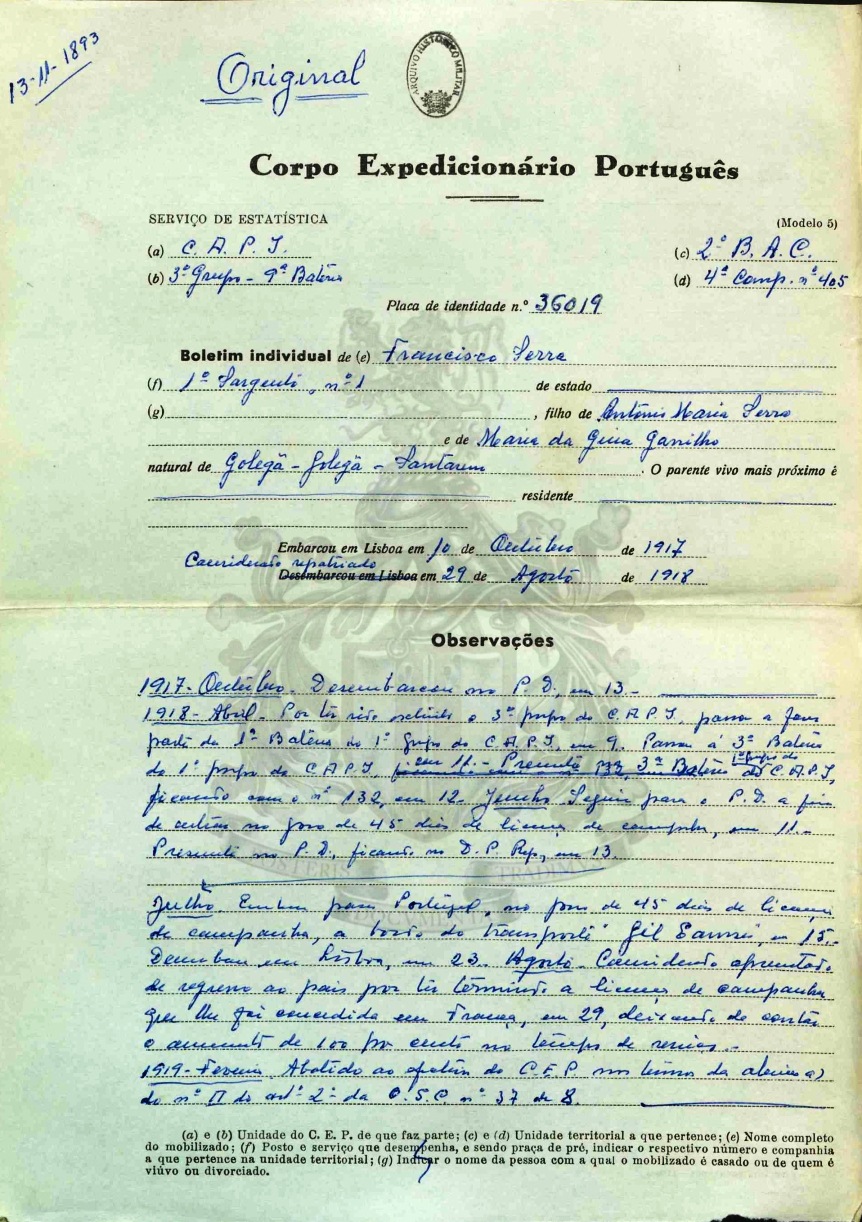 13-11-1893
Original
ARQUIVO HISTÓRICO MILITAR
Corpo Expedicionário Português
SERVIÇO DE ESTATÍSTICA
(Modelo 5)
(a) C. A. P. I.
(c) 2º B. A. C.
(b) 3º Grupo - 9ª Bateria
(d) 4ª Comp. nº 405
Placa de identidade n.º 36019
Boletim individual de (e) Francisco Serra
(f) 1º Sargento, nº 1 de estado
(g) , filho de António Maria Serra
e de Maria da Garrilho
natural de Golegã - Golegã - Santarem . O parente vivo mais próximo é
residente
Embarcou em Lisboa em 10 de Outubro de 1917
Considerado repatriado
Desembarcou em Lisboa em 29 de Agosto de 1918
Observações
1917 - Outubro - Desembarcou no P. D., em 13.-
1918 - Abril - Por ter sido o 3º grupo do C. A. P. I., passa a fazer
parte da 1ª Bateria do 1º Grupo do C. A. P. I., em 9. Passa á 3ª Bateria
do 1º grupo do C. A. P. I., em 11.- 3ª Bateria 1º grupo do C. A. P. I,
ficando com o nº 132, em 12. Junho. Seguiu para o P. D. a fim
de no gozo de 45 dias de licença de campanha, em 11.-
Presente no P. D., ficando no D. P. Rep, em 13.
Julho. para Portugal, no gozo de 45 dias de licença
de campanha, a bordo do transporte "Gil Eannes", em 15.-
em Lisboa, em 23. Agosto. Considerado apresentado
de regresso ao país por ter terminado a licença de campanha
que lhe foi concedida em França, em 29, deixando de contar
o aumento de 100 por cento no tempo de serviço.-
1919 - Abatido ao do C. E. P. nos termos da alinea a)
do nº II do artº 2º da O. S. C. nº 37 de 8.
(a) e (b) Unidade do C. E. P. de que faz parte; (c) e (d) Unidade territorial a que pertence; (e) Nome completo
do mobilizado; (f) Posto e serviço que desempenha, e sendo praça de pré, indicar o respectivo número e companhia
a que pertence na unidade territorial; (g) Indicar o nome da pessoa com a qual o mobilizado é casado ou de quem é
viúvo ou divorciado.